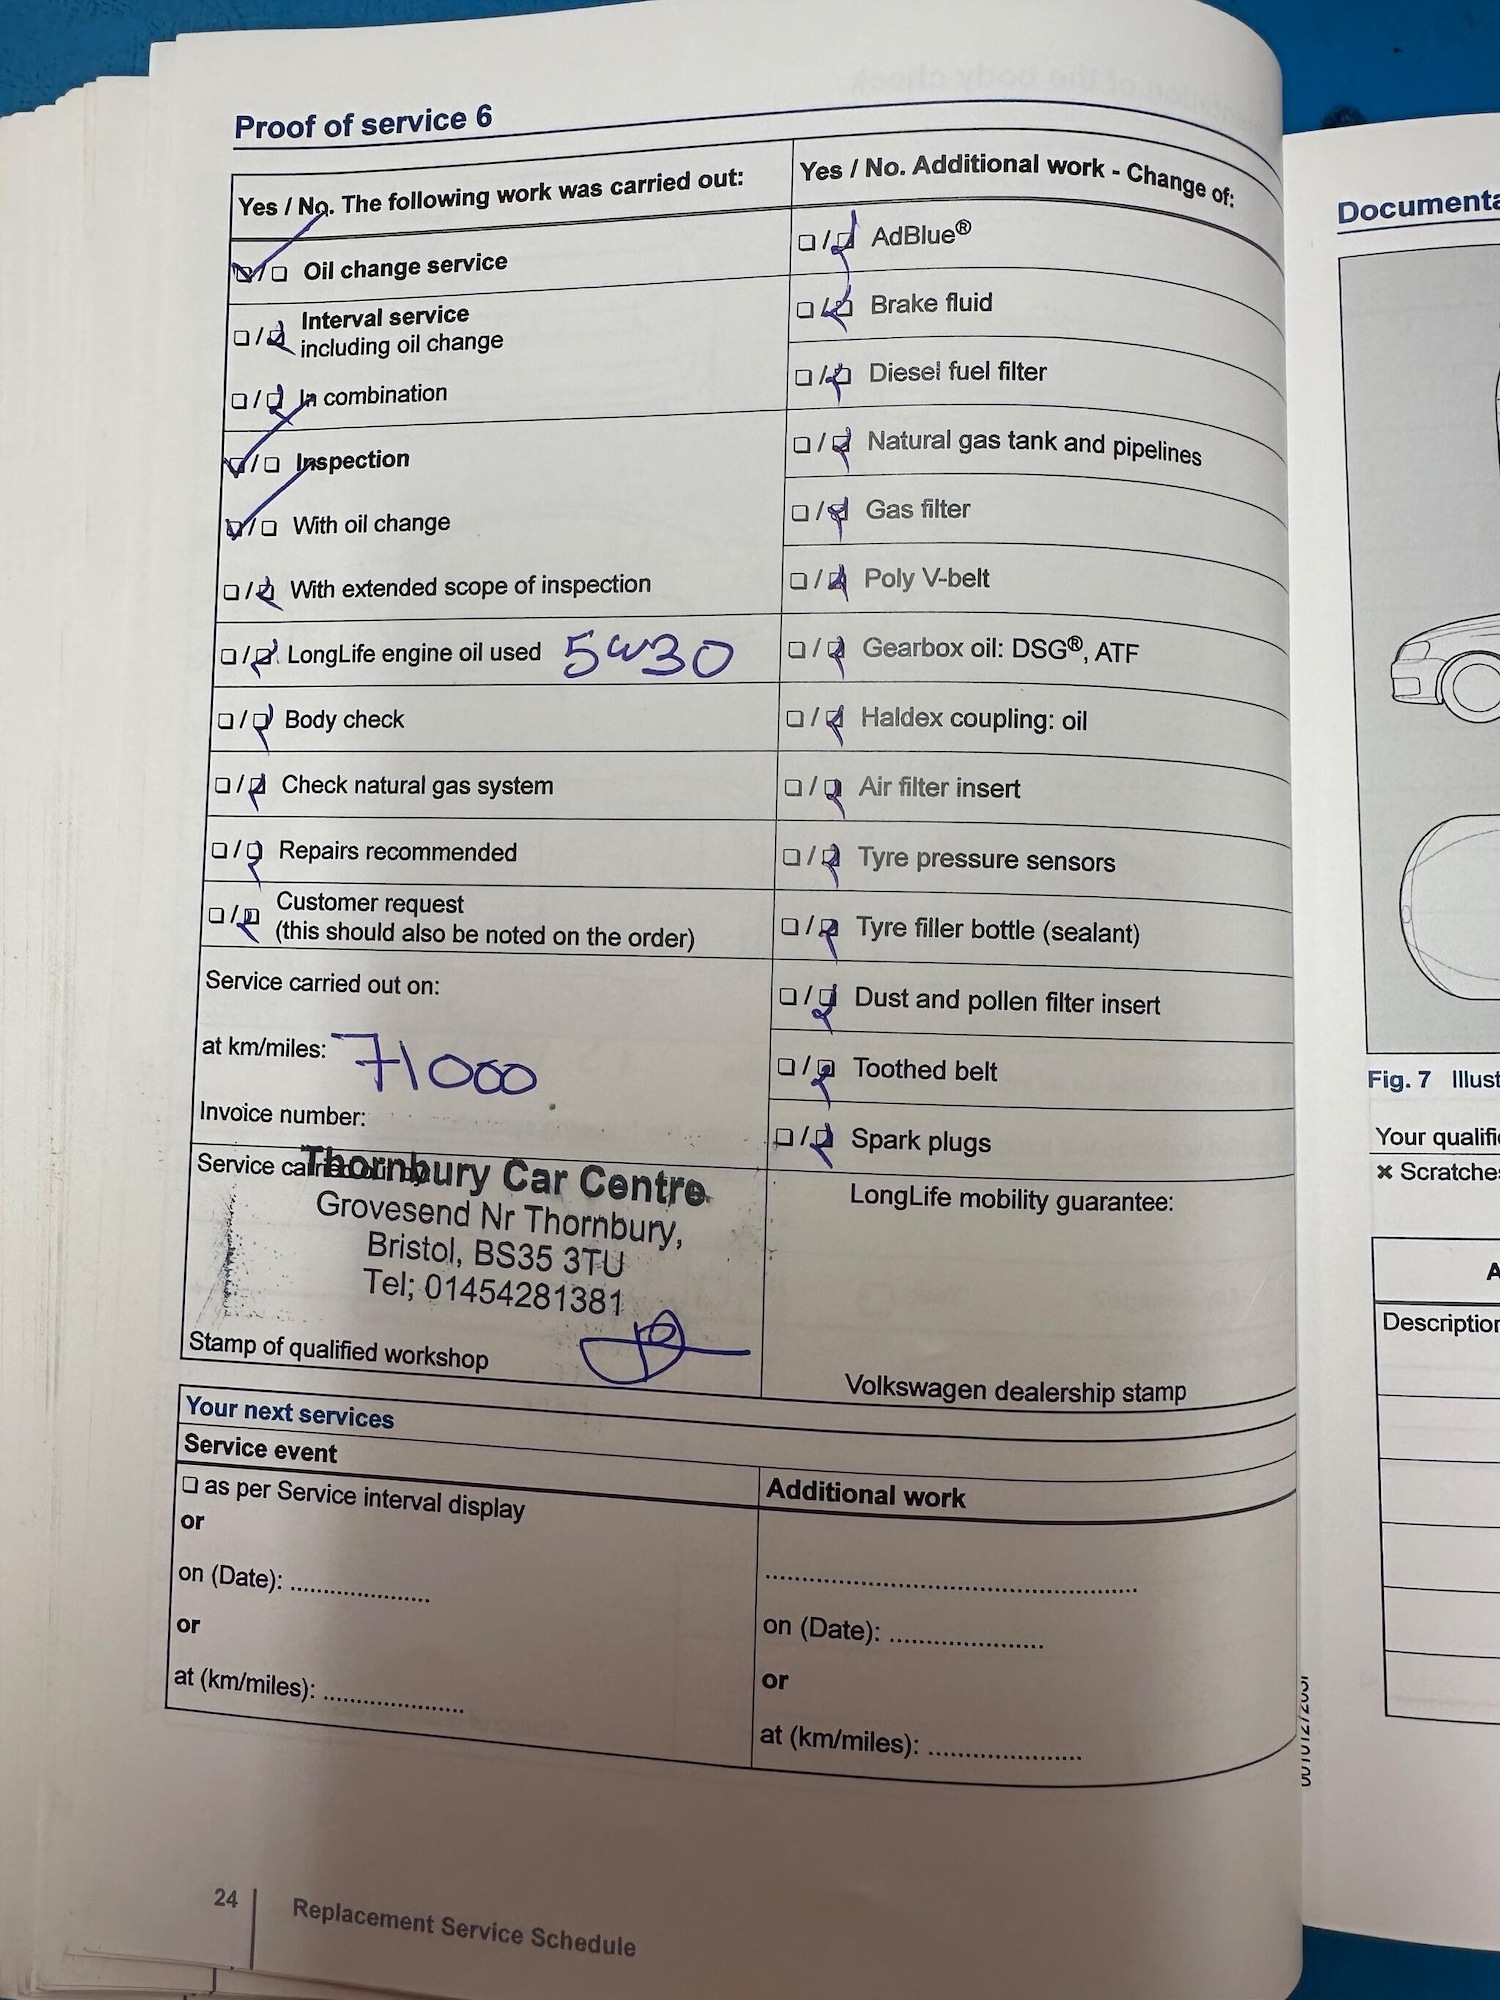 Proof of service 6
Yes / No. The following work was carried out:
Oil change service
Interval service
including oil change
In combination
Inspection
With oil change
With extended scope of inspection
LongLife engine oil used 5W30
Body check
Check natural gas system
Repairs recommended
Customer request
(this should also be noted on the order)
Service carried out on:
at km/miles: 71000
Invoice number:
Service carried out by
Thornbury Car Centre
Grovesend Nr Thornbury,
Bristol, BS35 3TU
Tel; 01454281381
Stamp of qualified workshop
Yes / No. Additional work - Change of:
AdBlue®
Brake fluid
Diesel fuel filter
Natural gas tank and pipelines
Gas filter
Poly V-belt
Gearbox oil: DSG®, ATF
Haldex coupling: oil
Air filter insert
Tyre pressure sensors
Tyre filler bottle (sealant)
Dust and pollen filter insert
Toothed belt
Spark plugs
LongLife mobility guarantee:
Volkswagen dealership stamp
Your next services
Service event
as per Service interval display
or
on (Date): ....................
or
at (km/miles): ....................
Additional work
on (Date): ......................
or
at (km/miles): ......................
24
Replacement Service Schedule
Fig. 7
Your
× Scratches